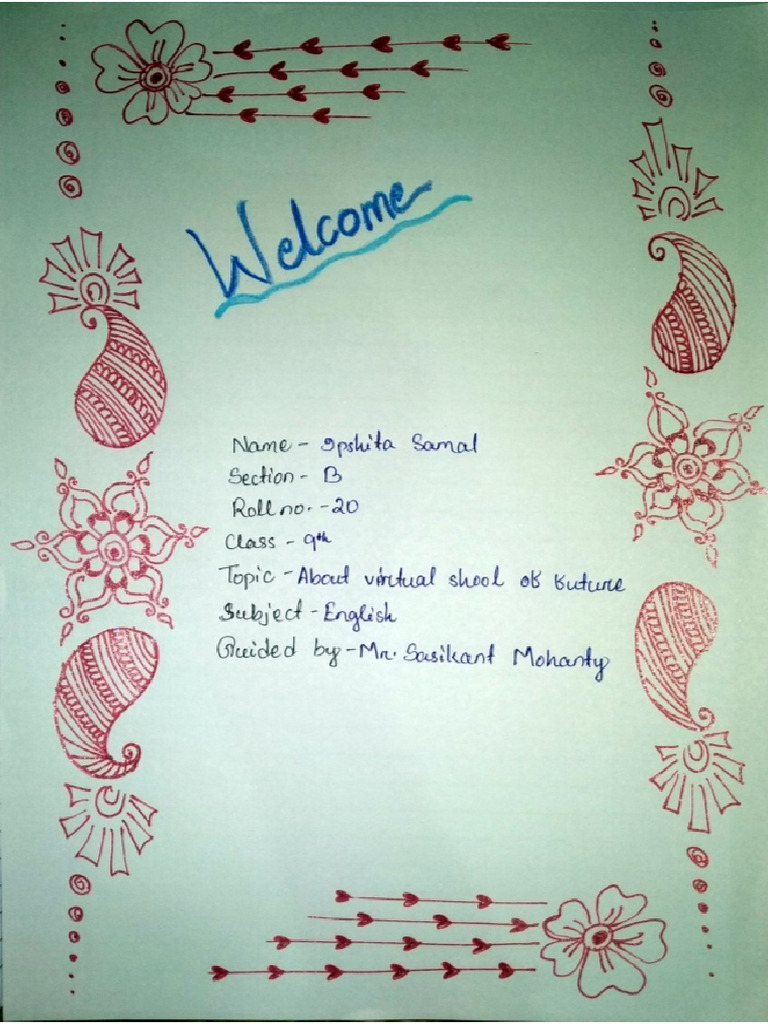 Welcome
Name - Ipshita Samal
Section - B
Roll no. - 20
Class - 9th
Topic - About virtual shool of future
Subject - English
Guided by - Mr. Sasikant Mohanty